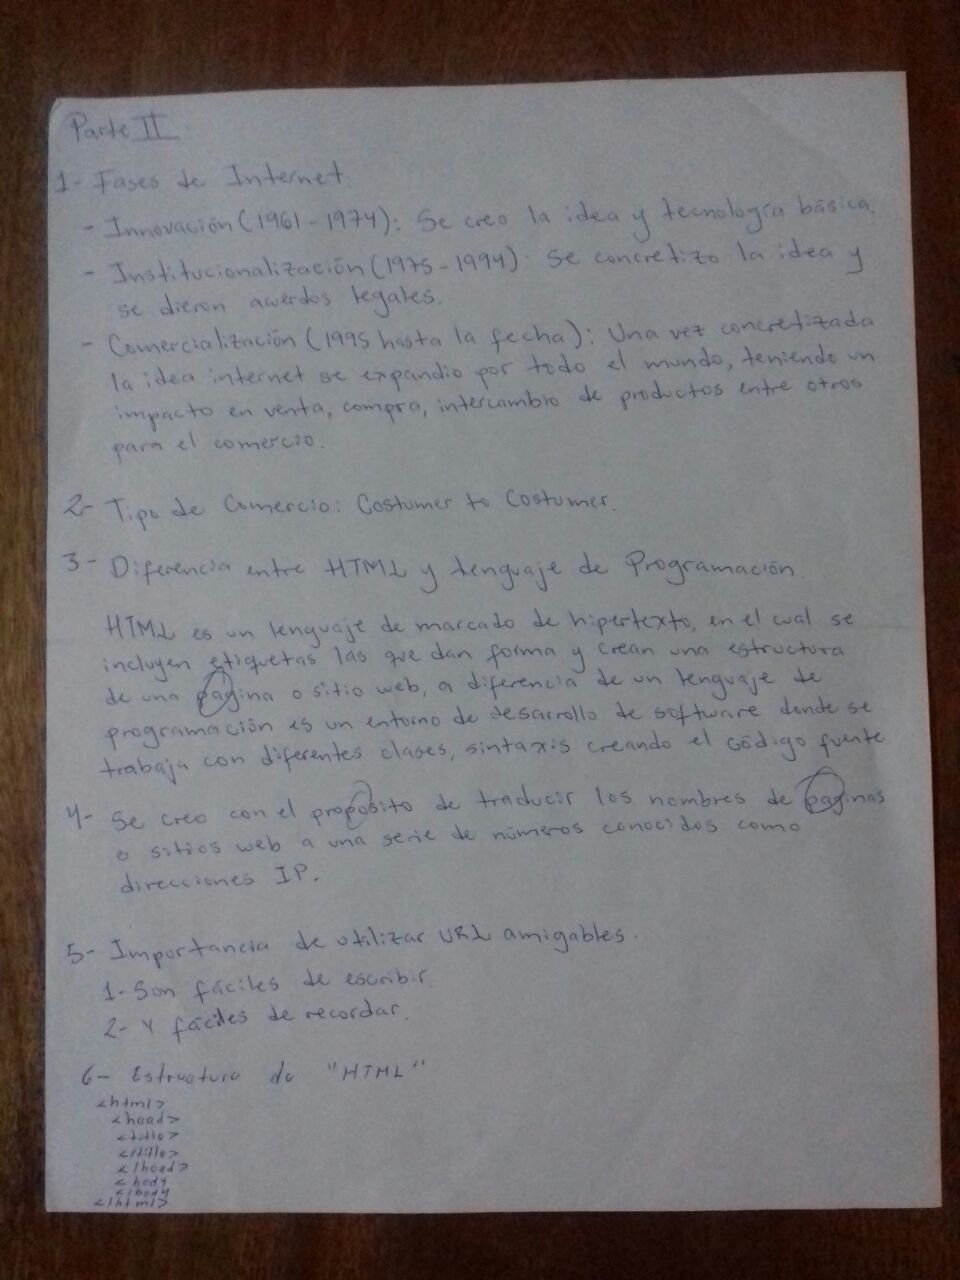 Parte II
1- Fases de Internet.
- Innovación (1961 - 1974): Se creo la idea y tecnología básica.
- Institucionalización (1975 - 1994): Se concretizo la idea y
se dieron acuerdos legales.
- Comercialización (1995 hasta la fecha): Una vez concretizada
la idea internet se expandio por todo el mundo, teniendo un
impacto en venta, compra, intercambio de productos entre otros
para el comercio.
2- Tipo de Comercio: Costumer to Costumer.
3- Diferencia entre HTML y Lenguaje de Programación.
HTML es un lenguaje de marcado de hipertexto, en el cual se
incluyen etiquetas las que dan forma y crean una estructura
de una pagina o sitio web, a diferencia de un lenguaje de
programación es un entorno de desarrollo de software donde se
trabaja con diferentes clases, sintaxis creando el código fuente
4- Se creo con el proposito de traducir los nombres de paginas
o sitios web a una serie de números conocidos como
direcciones IP.
5- Importancia de utilizar URL amigables.
1- Son fáciles de escribir.
2- Y fáciles de recordar.
6- Estructura de "HTML"
<html>
<head>
<title>
</title>
</head>
<body
</body
</html>